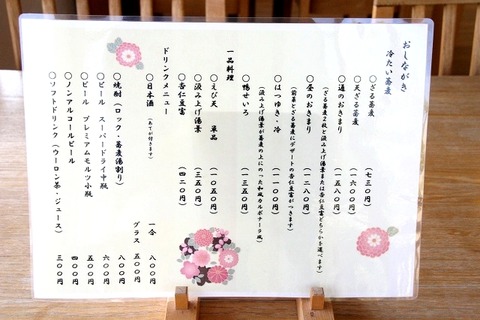 おしながき
冷たい蕎麦
○ざる蕎麦 （七三〇）
○天ざる蕎麦 （一六〇〇）
○通のおきまり （一五八〇）
（ざる蕎麦２枚と汲み上げ湯葉または杏仁豆腐どちらかを選べます）
○昼のおきまり （一二八〇）
（前菜とざる蕎麦にデザートの杏仁豆腐がつきます）
○はつゆき・冷 （一一〇〇）
（汲み上げ湯葉が蕎麦の上にのった和風カルボナーラ風）
○鴨せいろ （一三五〇）
一品料理
○えび天 単品 （一〇五〇円）
○汲み上げ湯葉 （三五〇円）
○杏仁豆腐 （四二〇円）
ドリンクメニュー
○日本酒 （あてが付きます） 一合 八〇〇円
グラス 五〇〇円
○焼酎（ロック・蕎麦湯割り） 八〇〇円
○ビール スーパードライ中瓶 六〇〇円
○ビール プレミアムモルツ小瓶 五〇〇円
○ノンアルコールビール 四〇〇円
○ソフトドリンク（ウーロン茶・ジュース） 三〇〇円